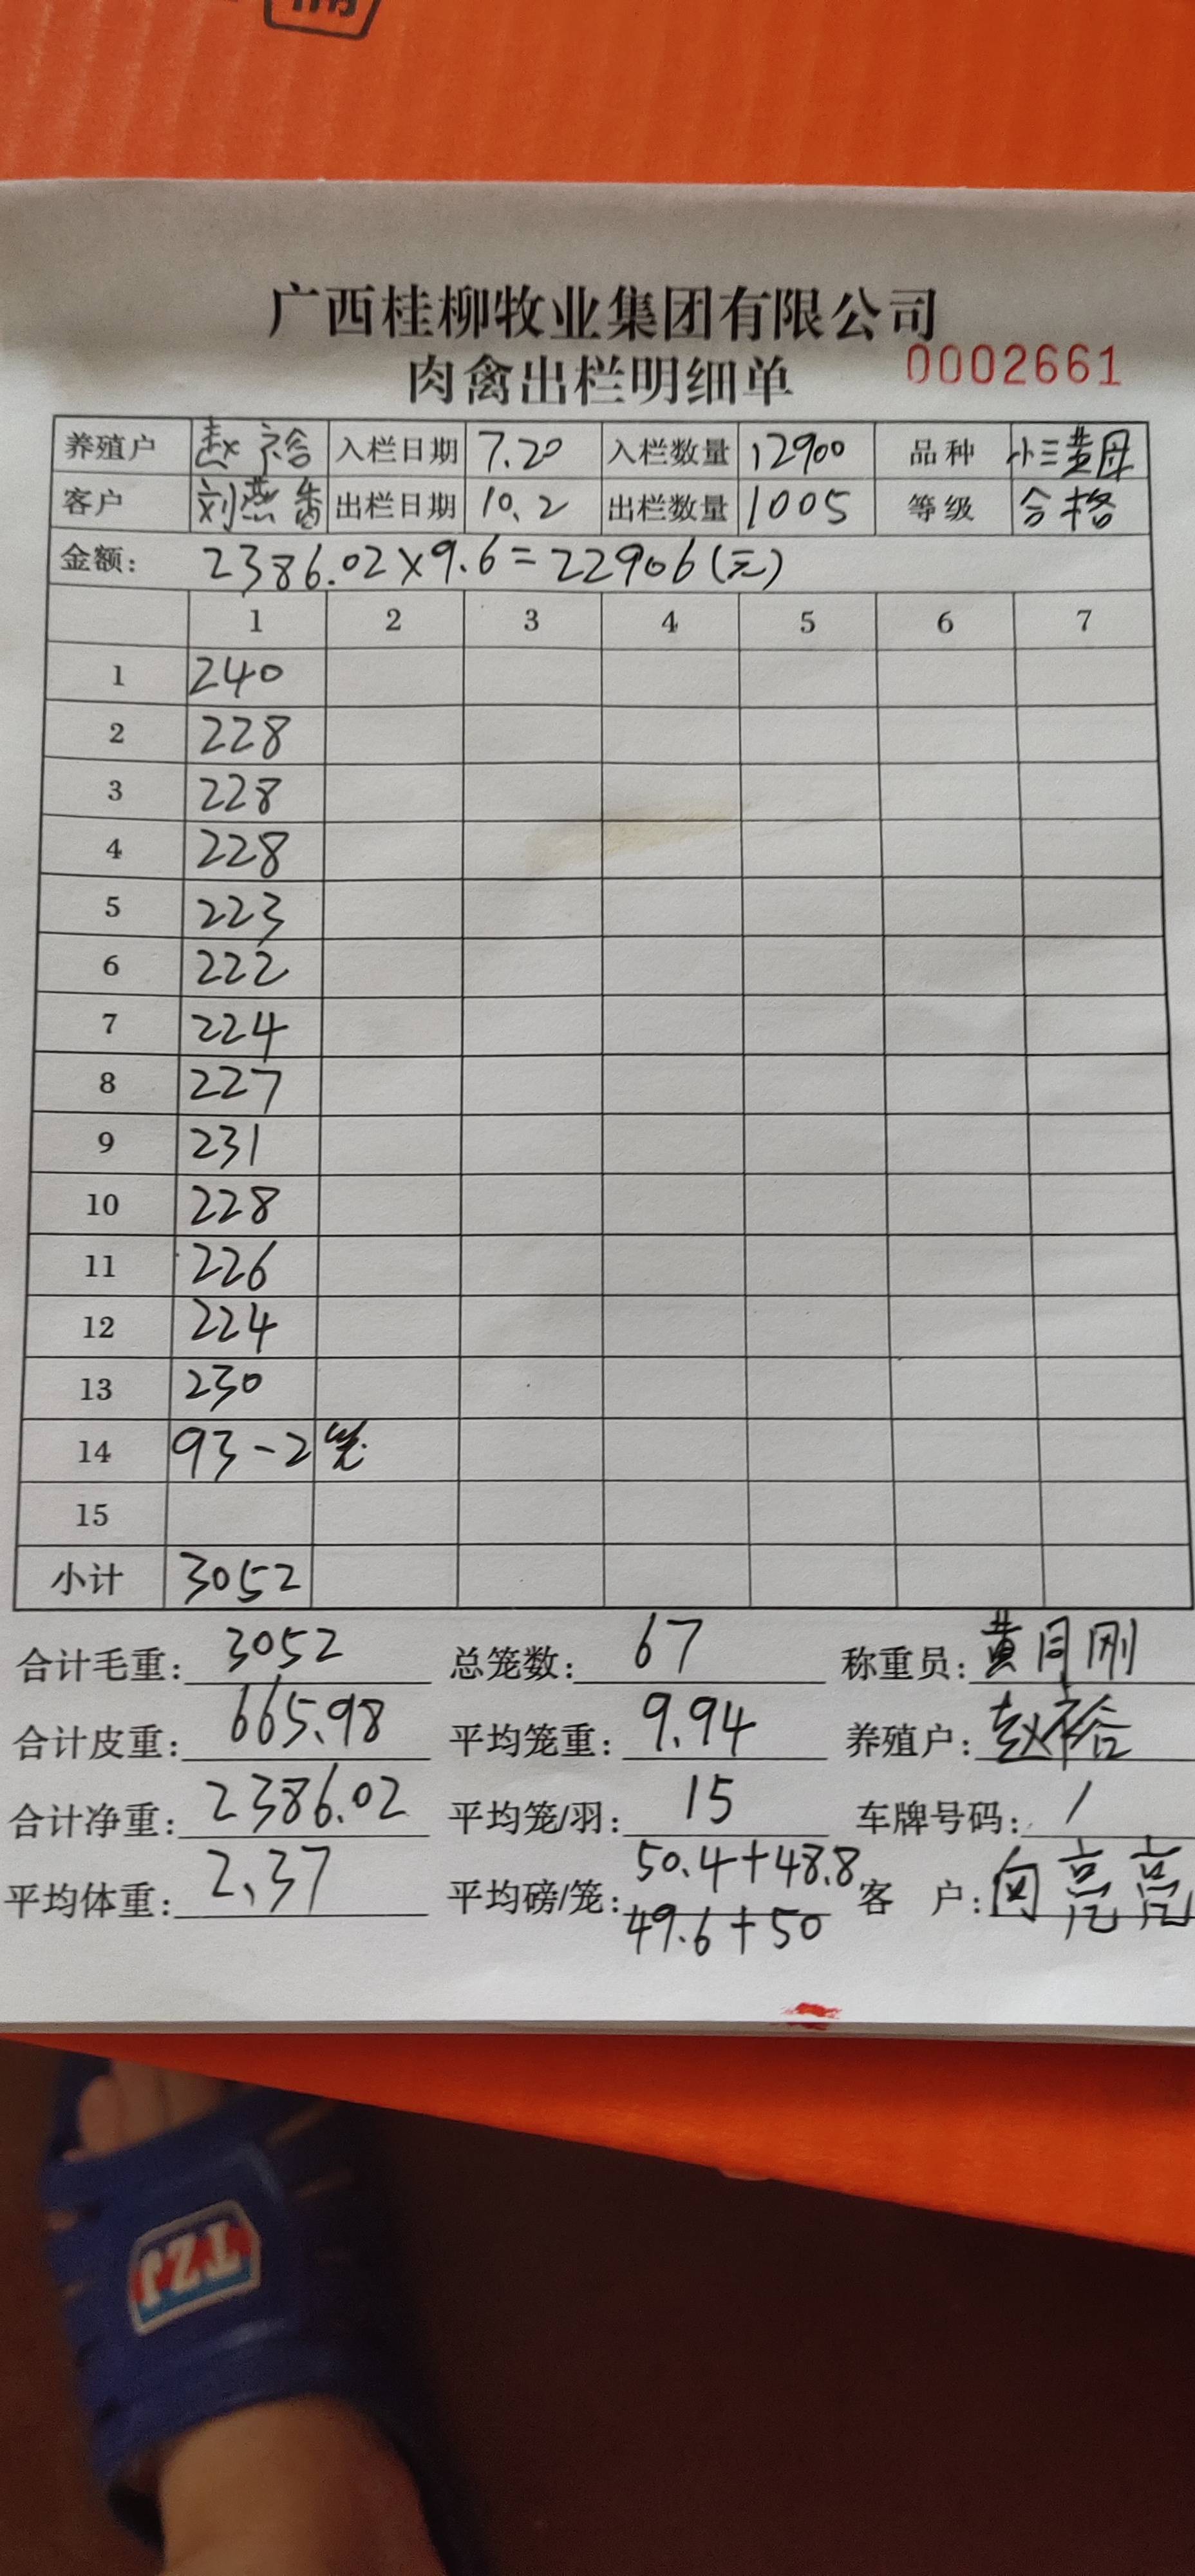 广西桂柳牧业集团有限公司
肉禽出栏明细单 0002661
养殖户 赵裕 入栏日期 7.20 入栏数量 12900 品种 小三黄母
客户 刘燕香 出栏日期 10.2 出栏数量 1005 等级 合格
金额: 2386.02×9.6=22906(元)
1 2 3 4 5 6 7
1 240
2 228
3 228
4 228
5 223
6 222
7 224
8 227
9 231
10 228
11 226
12 224
13 230
14 93-2笼
15
小计 3052
合计毛重: 3052 总笼数: 67 称重员: 黄月刚
合计皮重: 665.98 平均笼重: 9.94 养殖户: 赵裕
合计净重: 2386.02 平均笼/羽: 15 车牌号码: /
平均体重: 2.37 平均磅/笼: 50.4+48.8 客 户: 向亮亮
49.6+50
TZJ